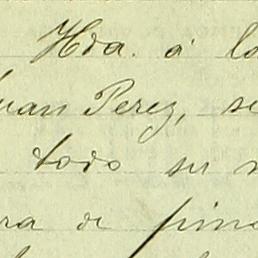 Hda. á la
uan Perez, se
todo su
ra de pino